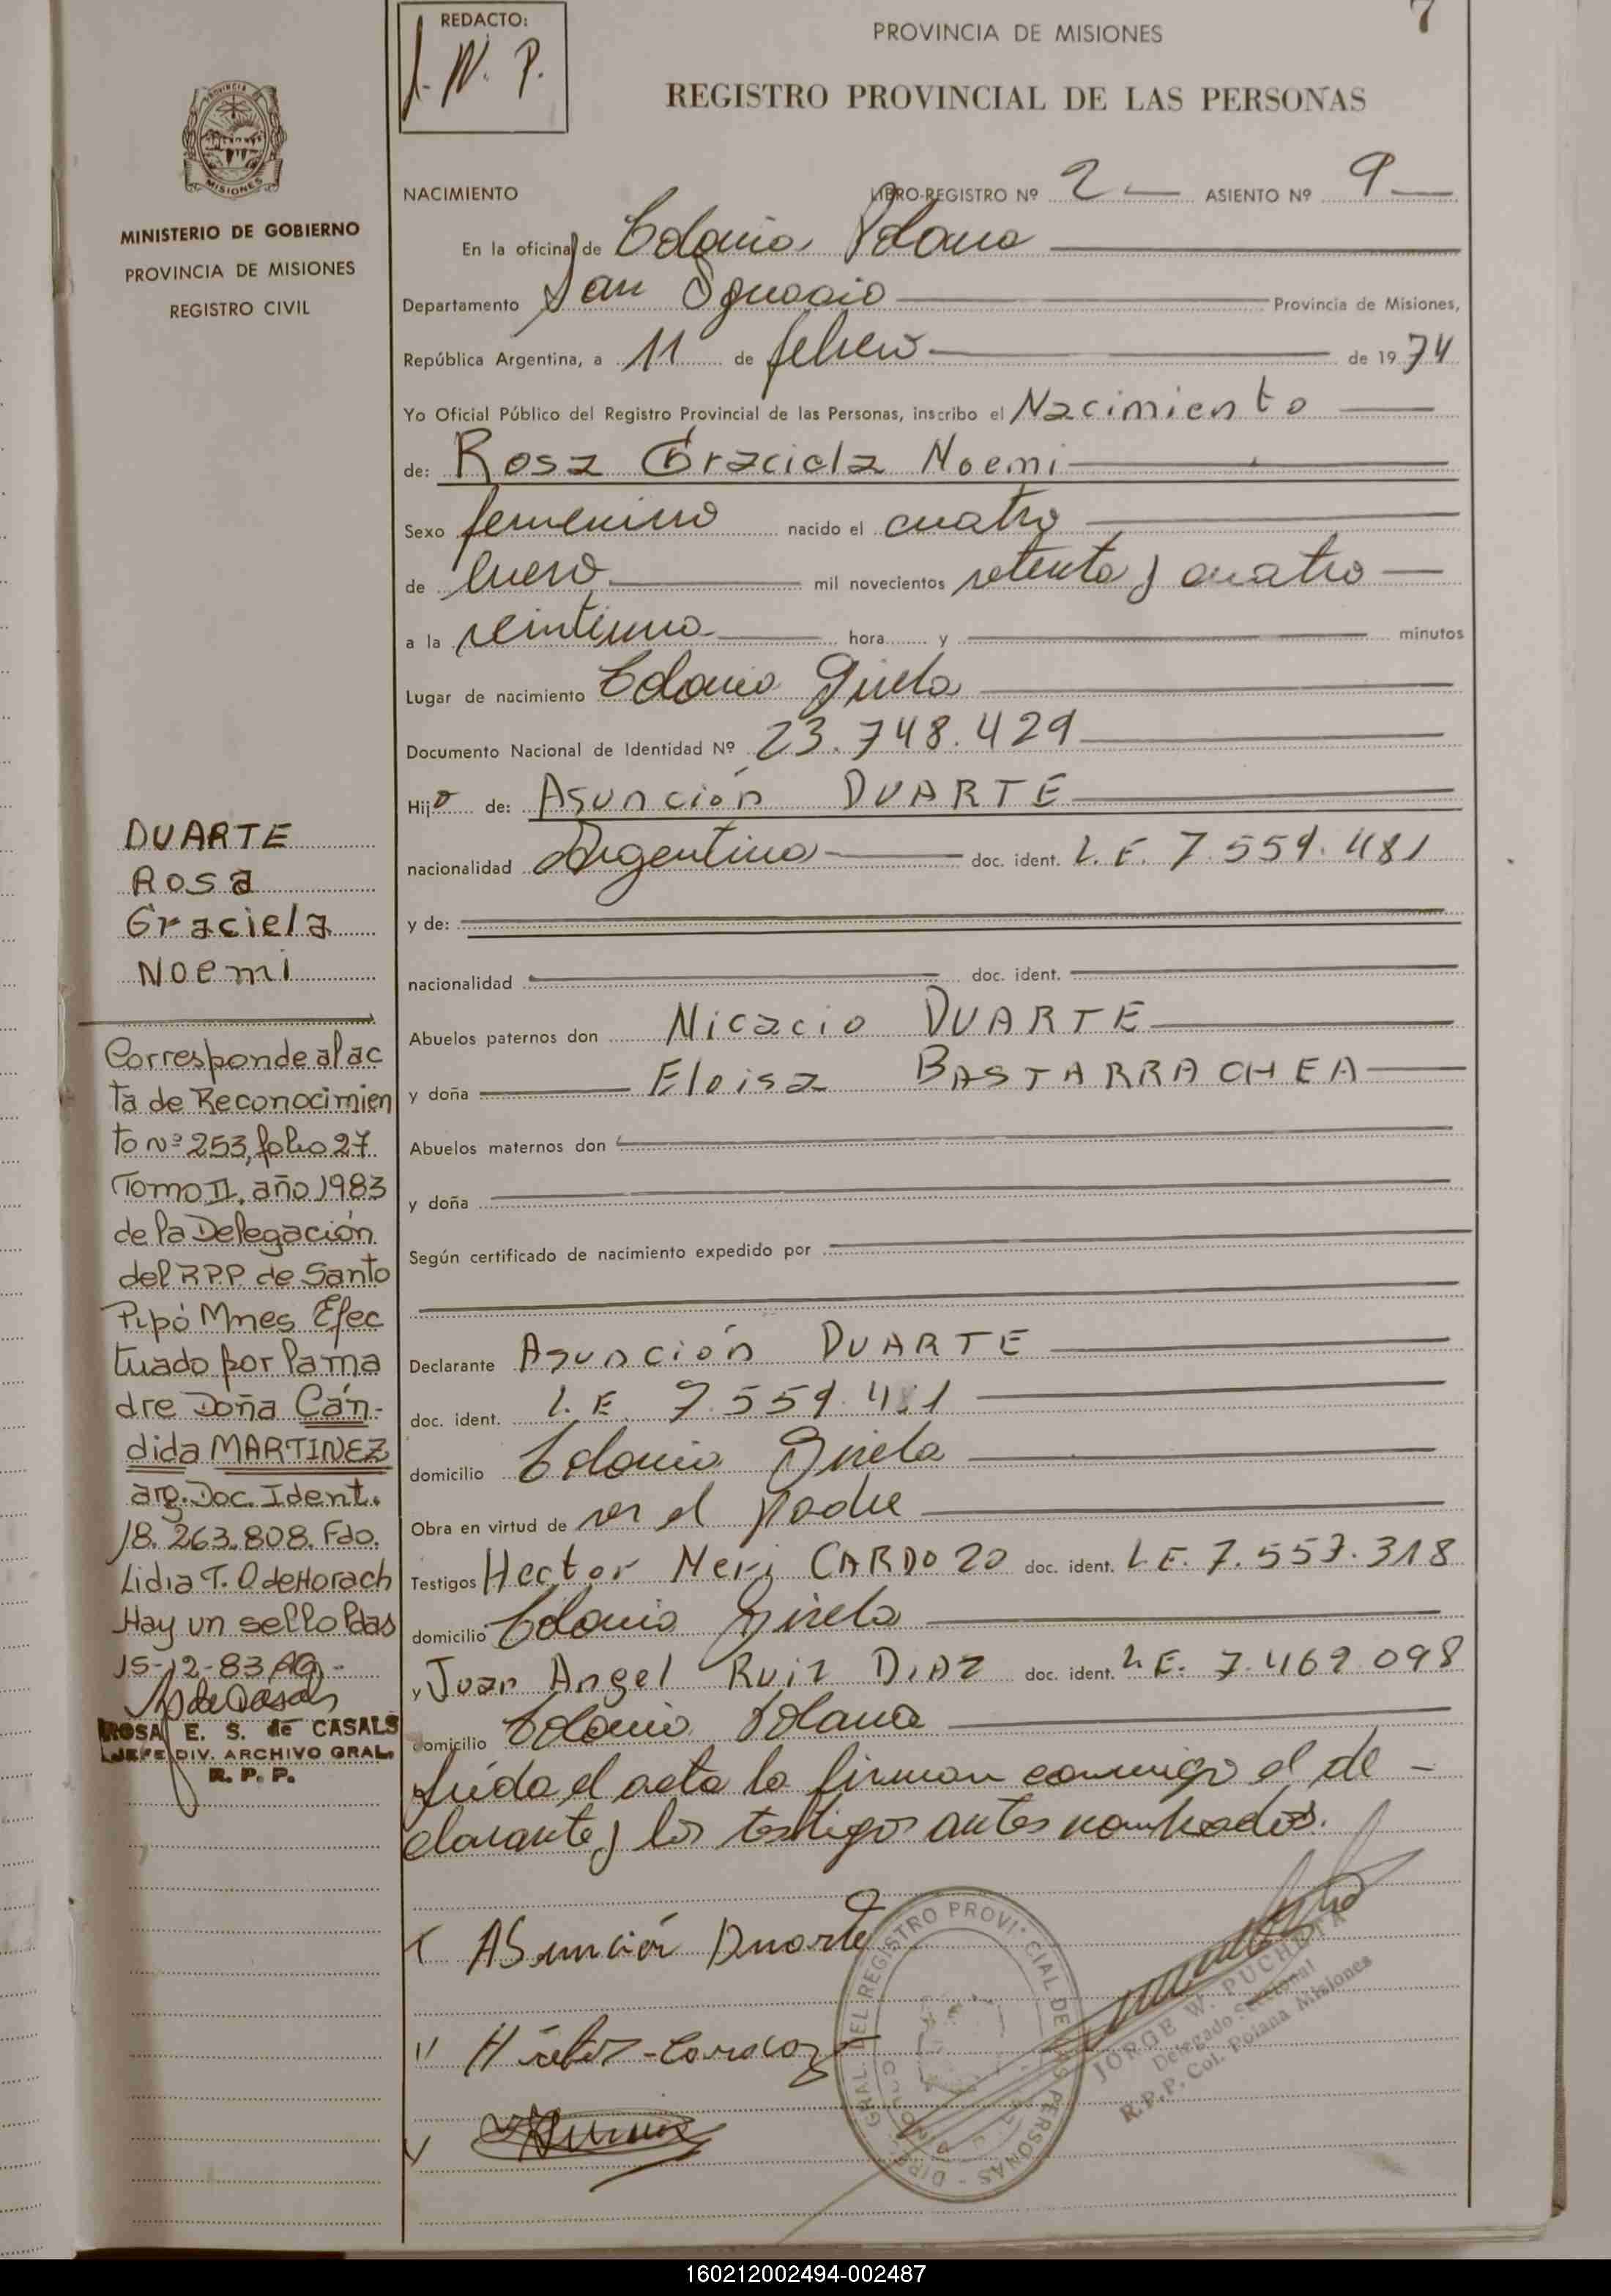 REDACTO:
J. W. P.
PROVINCIA DE MISIONES
7
REGISTRO PROVINCIAL DE LAS PERSONAS
PROVINCIA DE
MISIONES
MINISTERIO DE GOBIERNO
PROVINCIA DE MISIONES
REGISTRO CIVIL
NACIMIENTO LIBRO-REGISTRO Nº 2 ASIENTO Nº 9
En la oficina de Colonia Polana
Departamento San Ignacio Provincia de Misiones,
República Argentina, a 11 de febrero de 1974
Yo Oficial Público del Registro Provincial de las Personas, inscribo el Nacimiento
de: Rosa Graciela Noemi
Sexo femenino nacido el cuatro
de enero mil novecientos setenta y cuatro
a la veintiuna hora y minutos
Lugar de nacimiento Colonia Gisela
Documento Nacional de Identidad Nº 23.748.429
Hija de: Asunción DUARTE
nacionalidad Argentina doc. ident. L.E. 7.559.481
y de:
nacionalidad doc. ident.
Abuelos paternos don Nicacio DUARTE
y doña Eloisa BASTARRACHEA
Abuelos maternos don
y doña
Según certificado de nacimiento expedido por
Declarante Asunción DUARTE
doc. ident. L.E. 7.559.481
domicilio Colonia Gisela
Obra en virtud de ser el padre
Testigos Hector Neri CARDOZO doc. ident. L.E. 7.557.318
domicilio Colonia Gisela
y Juan Angel Ruiz DIAZ doc. ident. L.E. 7.469.098
domicilio Colonia Polana
Leída el acta la firman conmigo el de-
clarante y los testigos antes nombrados.
DUARTE
Rosa
Graciela
Noemi
Corresponde al ac
ta de Reconocimien
to Nº 253, folio 27
Tomo II, año 1983
de la Delegación
del R.P.P. de Santo
Pipó Mnes Efec
tuado por la ma
dre Doña Cán-
dida MARTINEZ
arg. Doc. Ident.
18.263.808. Fdo.
Lidia T. O de Horach
Hay un sello Pdas
15-12-83 AG.-
ROSA E. S. de CASALS
JEFE DIV. ARCHIVO GRAL.
R. P. P.
Asunción Duarte
" Héctor Cardozo
DIRC. GRAL. DEL REGISTRO PROVINCIAL DE LAS PERSONAS
JORGE W. PUCHETA
Delegado Seccional
R.P.P. Col. Polana Misiones
160212002494-002487